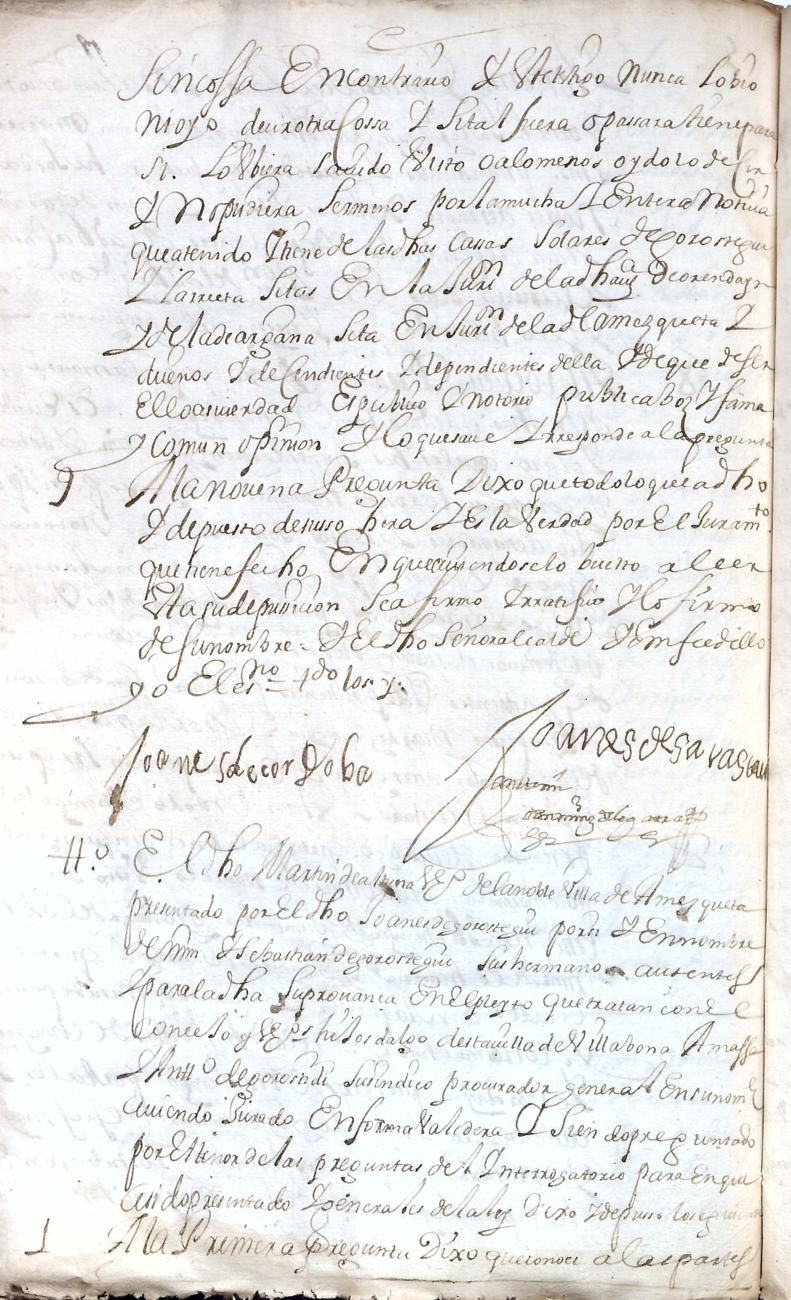 sin cossa En contrario y Este tgo Nunca lo bio
ni oyo decir otra Cossa y si tal fuera o passara tiene para
si. lo Vbiera savido Visto o a lo menos oydo lo decir
y No pudiera ser menos por la mucha y Entera Noticia
que a tenido y tiene de las dhas Cassas solares de gorostegui
y larreta sitas En la Jurin de la dha de orendayn
y de la de argana sita En Jurin de la de amezqueta y
dueños y decendientes y dependientes della y de que de ser
Ello asi verdad Es publico y notorio publica boz y fama
y Comun opinion y lo que save y rresponde a la pregunta
9 A la novena Pregunta Dixo que todo lo que a dho
y depuesto de susso hera y Es la Verdad por El Juramto
que tiene fecho En que aviendoselo buelto a leer
Esta su depusicion se afirmo y rratifico y lo firmo
de su nombre y El dho Señor alcalde y En fee dello
yo El esno
Joanes de cordoba Joanes de sarasain
ante mi
tto El dho Martin de Vzo de la noble Villa de Amezqueta
presentado por El dho Joanes de gorostegui por si y En nombre
de mn y sebastian de gorostegui sus hermanos ausentes
para la dha su provanca En El pleyto que tratan con El
Concejo y Vzos hijos dalgo desta villa de Villabona Amassa
y Antto de gorostidi su sindico procurador general En su nome
aviendo Jurado En forma Valedera y siendo preguntado
por El tenor de las preguntas del Interrogatorio para En que a
sido presentado y generales de la ley dixo y depusso lo siguiente
1 A la Primera Pregunta Dixo que conoce a las partes